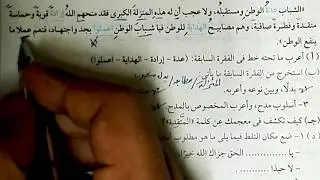 الشباب عدة الوطن ومستقبله، ولا عجب أن له هذه المنزلة الكبرى فقد منحهم الله إرادة قوية وحماسة
متقدة وفطرة صافية، وهم مصابيح الهداية للوطن فيا شباب الوطن اعملوا بجد واجتهاد، فنعم عملا ما
ينفع الوطن.
(أ) أعرب ما تحته خط في الفقرة السابقة: (عدة - إرادة - الهداية - اعملوا)
(ب) استخرج من الفقرة السابقة ما يأتي:
بدلًا، وبين نوعه وأعربه.
٣- أسلوب مدح، وأعرب المخصوص بالمدح
(جـ) كيف تكشف في معجمك عن كلمة (المتقدة)
(د) ١- ضع مكان النقط فيما يلي ما هو مطلوب
- يا ...... الحق جزاك الله خيرًا
- لا حبذا